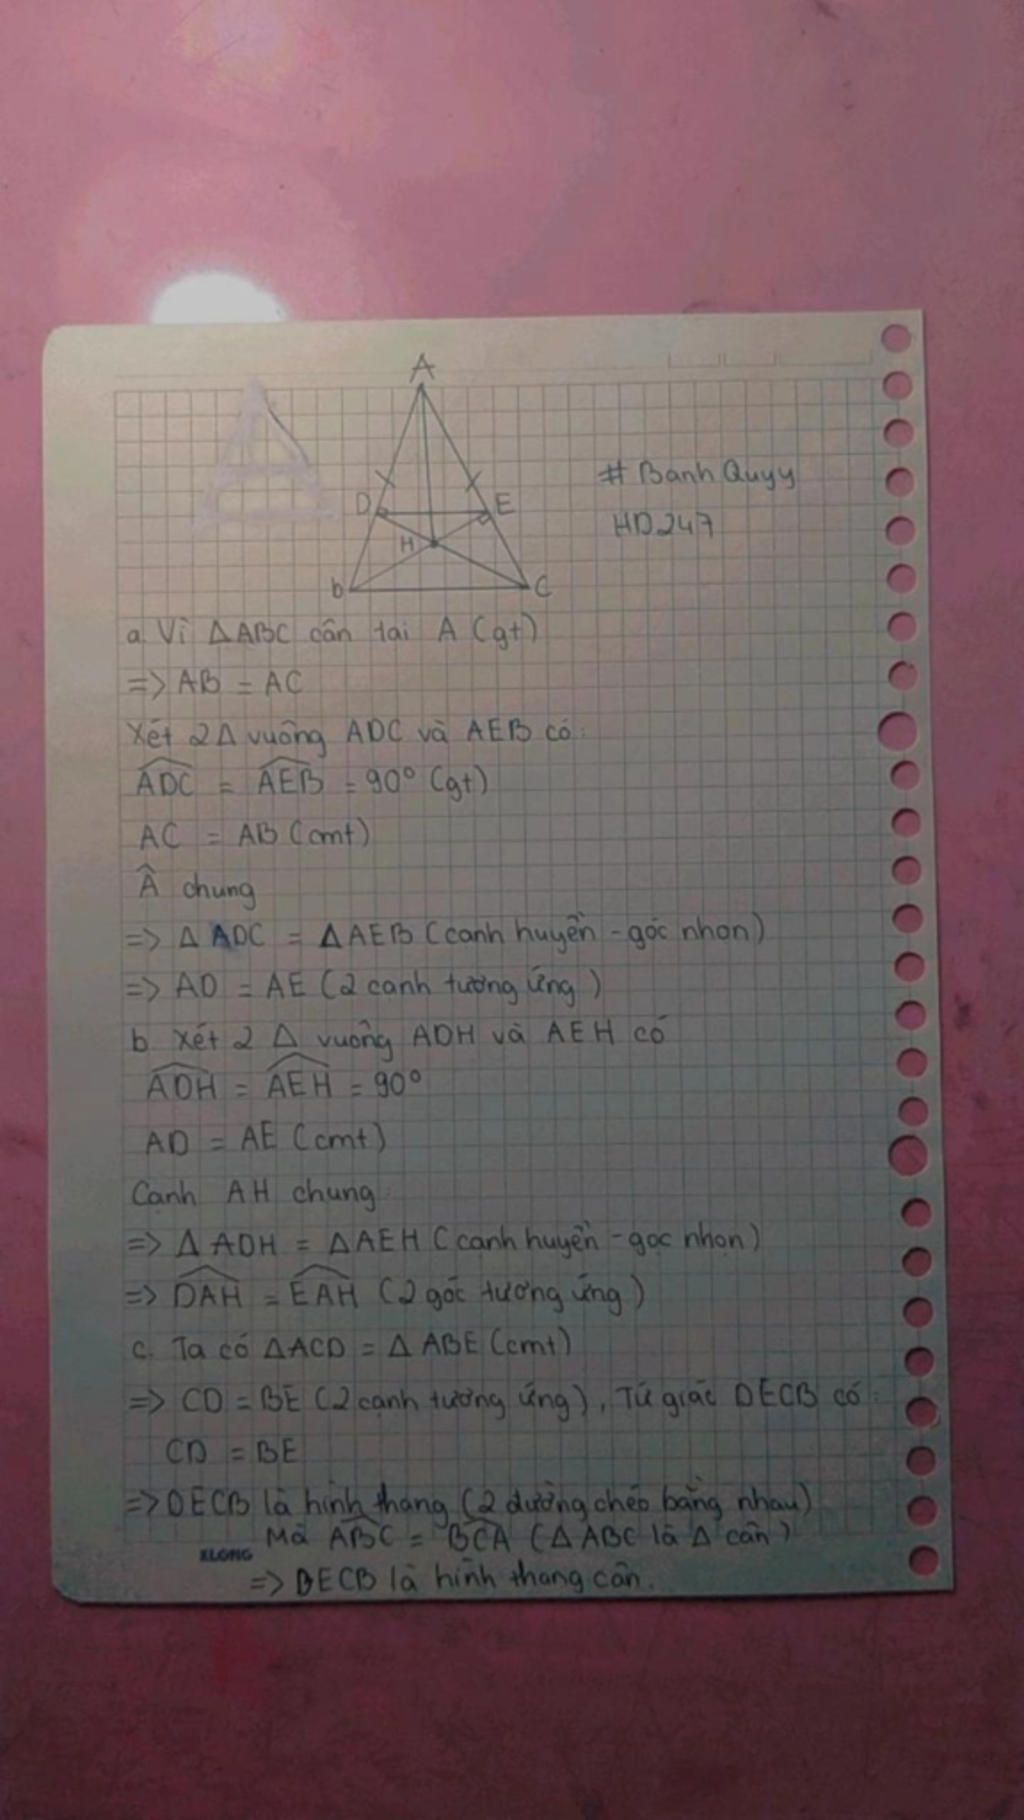 A
D
E
H
b
C
# Banh Quyy
HD247
a. Vì ΔABC cân tai A (gt)
=> AB = AC
Xét 2Δ vuông ADC và AEB có:
ADC = AEB = 90° (gt)
AC = AB (cmt)
Â chung
=> Δ ADC = ΔAEB (canh huyền - góc nhọn)
=> AD = AE (2 canh tương ứng)
b. Xét 2 Δ vuông ADH và AEH có
ADH = AEH = 90°
AD = AE (cmt)
Canh AH chung
=> Δ ADH = ΔAEH (canh huyền - goc nhon)
=> DAH = EAH (2 góc tương ứng)
c. Ta có ΔACD = Δ ABE (cmt)
=> CD = BE (2 canh tương ứng), Tứ giác DECB có:
CD = BE
=> DECB là hình thang (2 đường chéo bằng nhau)
Mà ABC = BCA (Δ ABC là Δ cân)
KLONG
=> DECB là hình thang cân.